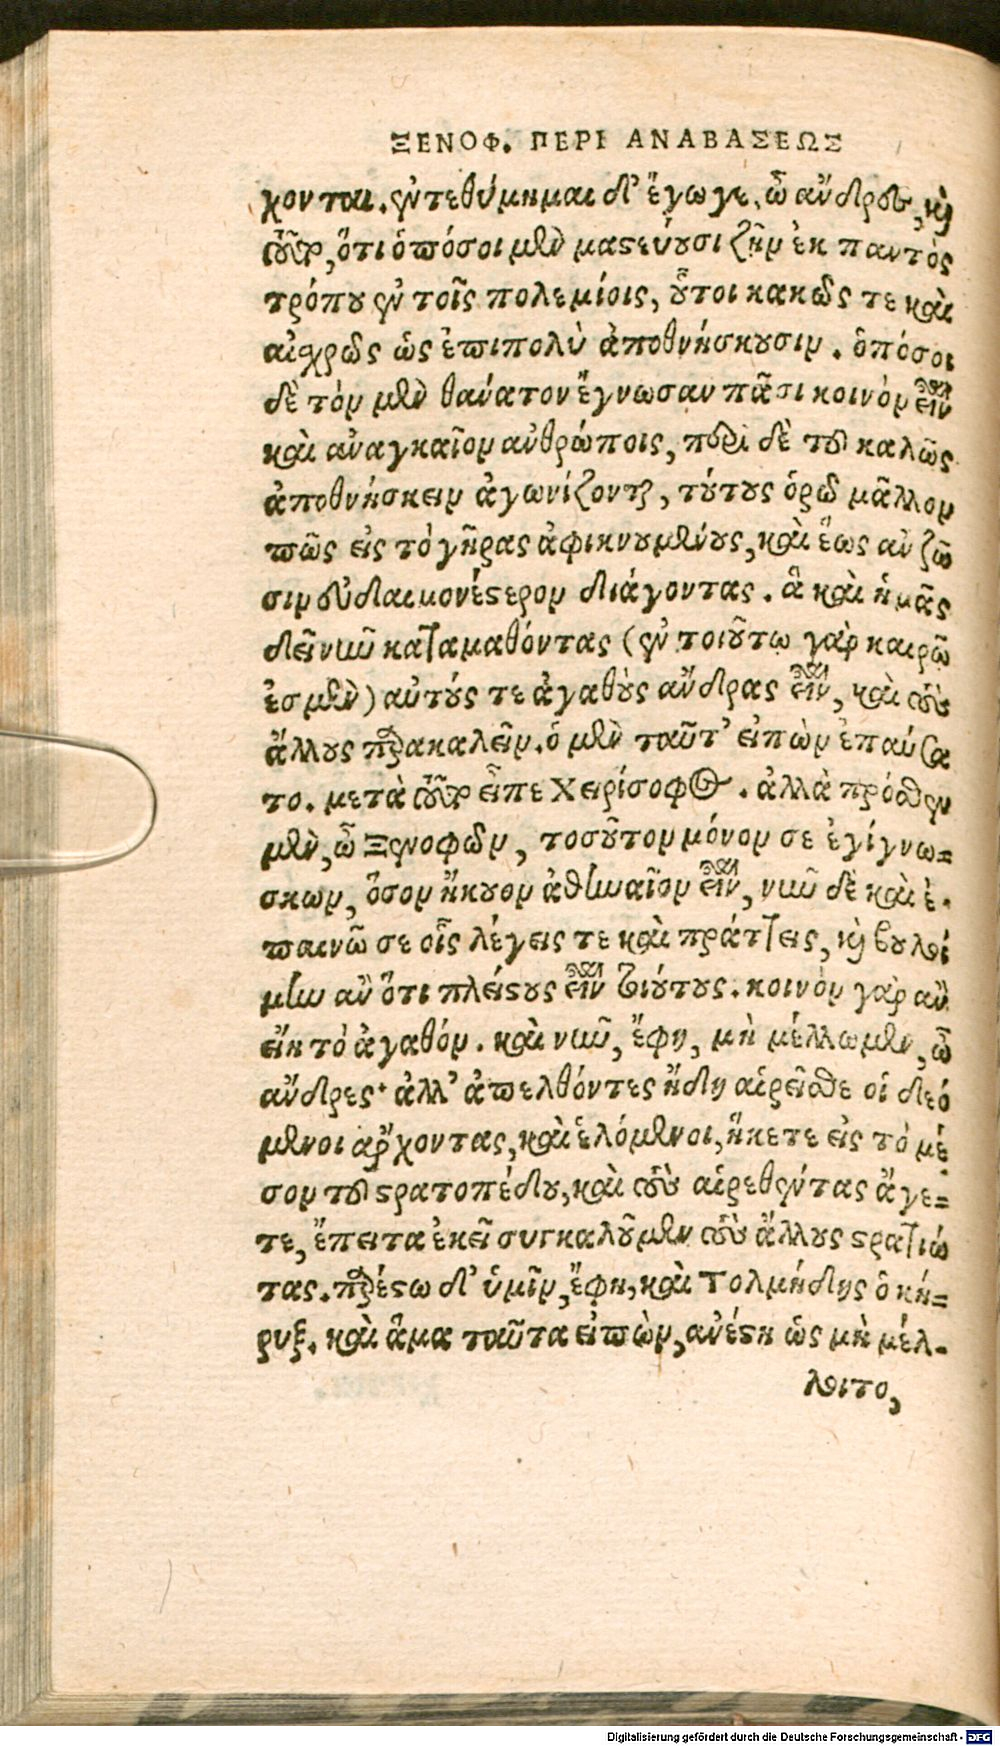 ΞΕΝΟΦ. ΠΕΡΙ ΑΝΑΒΑΣΕΩΣ
χονται. ἐντεθύμημαι δ' ἔγωγε, ὦ ἄνδρες, καὶ
τοῦτο, ὅτι ὁπόσοι μὲν μαστεύουσι ζῆν ἐκ παντὸς
τρόπου ἐν τοῖς πολεμίοις, οὗτοι κακῶς τε καὶ
αἰσχρῶς ὡς ἐπιπολὺ ἀποθνήσκουσιν. ὁπόσοι
δὲ τὸν μὲν θάνατον ἔγνωσαν πᾶσι κοινὸν εἶναι
καὶ ἀναγκαῖον ἀνθρώποις, περὶ δὲ τοῦ καλῶς
ἀποθνήσκειν ἀγωνίζονται, τούτους ὁρῶ μᾶλλον
πῶς εἰς τὸ γῆρας ἀφικνουμένους, καὶ ἕως ἂν ζῶ
σιν εὐδαιμονέστερον διάγοντας. ἃ καὶ ἡμᾶς
δεῖ νῦν καταμαθόντας (ἐν τοιούτῳ γὰρ καιρῷ
ἐσμὲν) αὐτούς τε ἀγαθοὺς ἄνδρας εἶναι, καὶ τοὺς
ἄλλους παρακαλεῖν. ὁ μὲν ταῦτ' εἰπὼν ἐπαύσα
το. μετὰ τοῦτον εἶπε Χειρίσοφος. ἀλλὰ πρόσθεν
μὲν, ὦ Ξενοφῶν, τοσοῦτον μόνον σε ἐγίγνω=
σκων, ὅσον ἤκουον ἀθηναῖον εἶναι, νῦν δὲ καὶ ἐ-
παινῶ σε οἷς λέγεις τε καὶ πράττεις, καὶ βουλοί
μην ἂν ὅτι πλείστους εἶναι τοιούτους. κοινὸν γὰρ ἂν
εἴη τὸ ἀγαθόν. καὶ νῦν, ἔφη, μὴ μέλλωμεν, ὦ
ἄνδρες· ἀλλ' ἀπελθόντες ἤδη αἱρεῖσθε οἱ δεό
μενοι ἄρχοντας, καὶ ἑλόμενοι, ἥκετε εἰς τὸ μέ
σον τοῦ στρατοπέδου, καὶ τοὺς αἱρεθέντας ἄγε=
τε, ἔπειτα ἐκεῖ συγκαλοῦμεν τοὺς ἄλλους στρατιώ
τας. παρέστω δ' ὑμῖν, ἔφη, καὶ Τολμήδης ὁ κή=
ρυξ. καὶ ἅμα ταῦτα εἰπὼν, ἀνέστη ὡς μὴ μέλ-
λοιτο,
Digitalisierung gefördert durch die Deutsche Forschungsgemeinschaft - DFG